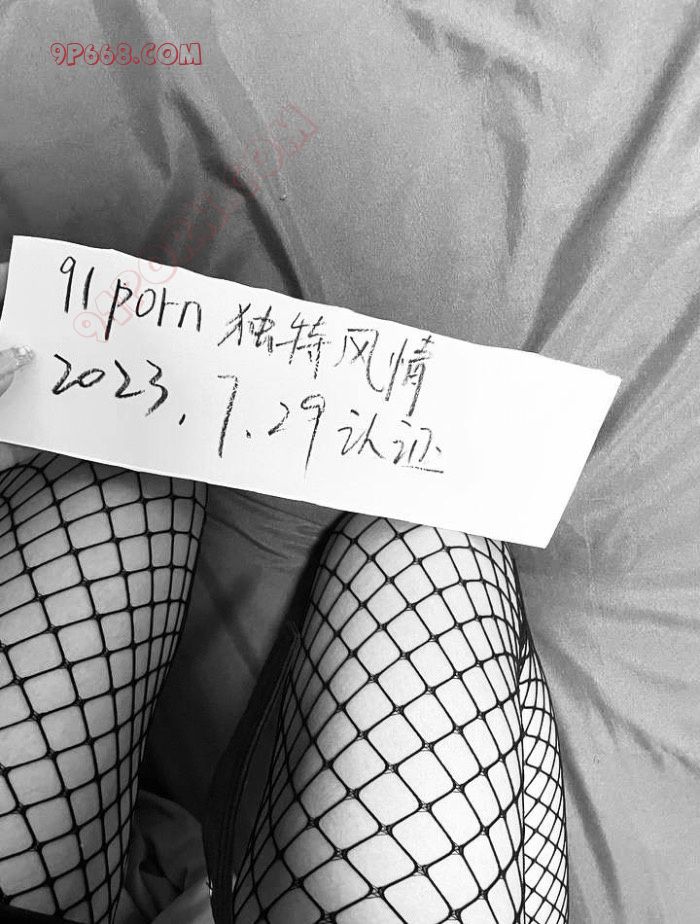 9P668.COM
91PORN.COM
91porn 独特风情
2023.7.29认证